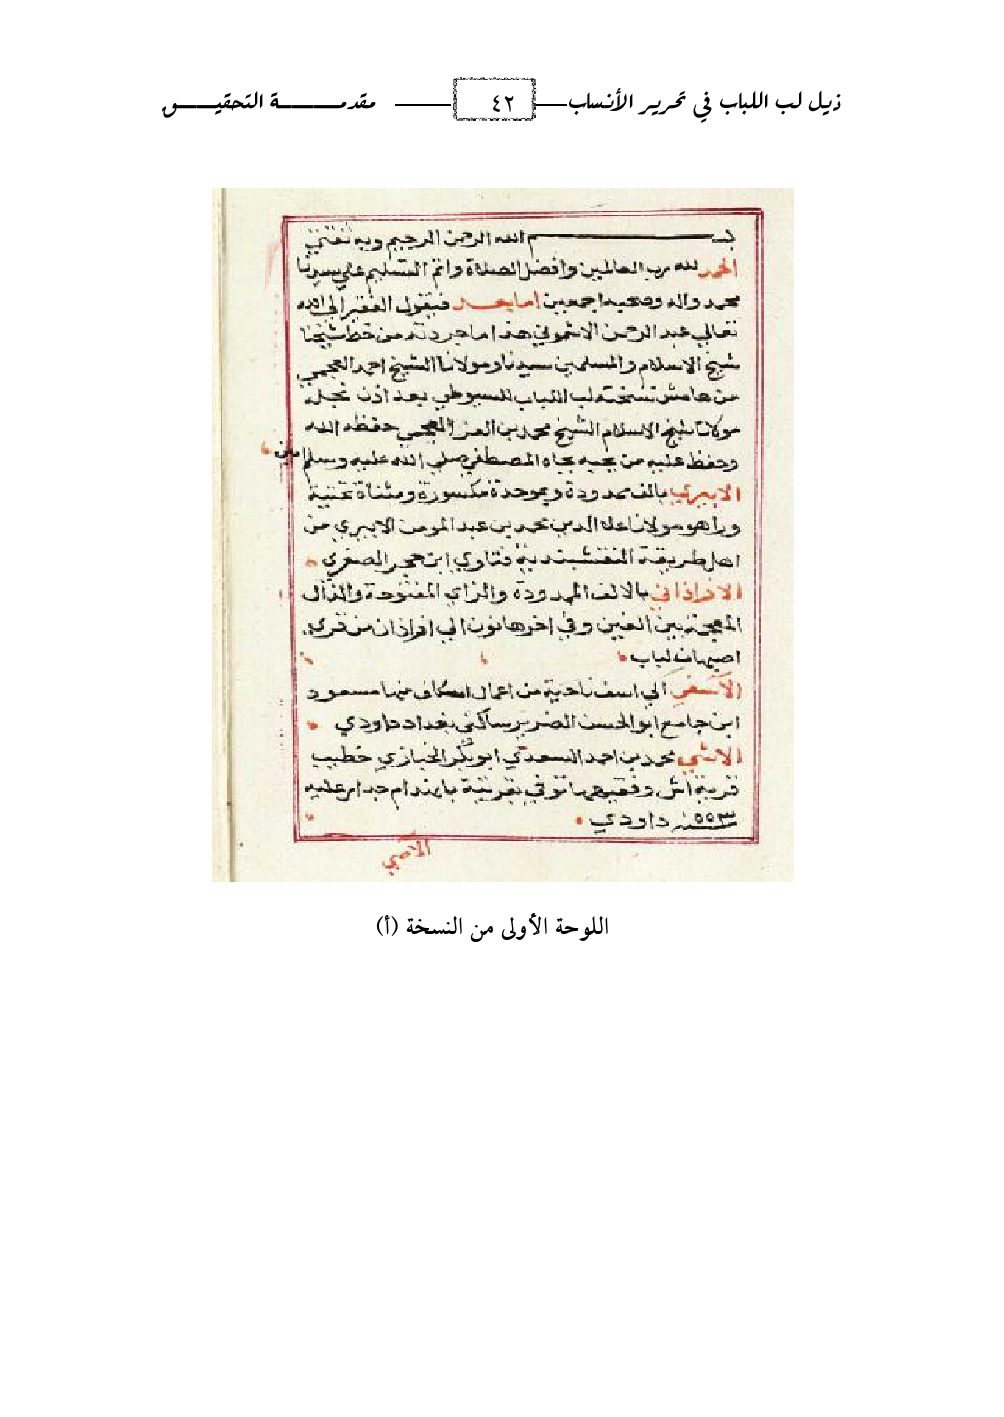 ذيل لب اللباب في تحرير الأنساب ٤٢ مقدمة التحقيق
بسم الله الرحمن الرحيم وبه ثقتي
الحمد لله رب العالمين وافضل الصلاة واتم التسليم علي سيدنا
محمد واله وصحبه اجمعين اما بعد فيقول الفقير الي الله
تعالي عبد الرحمن الاشموني هذا ما جردته من خط شيخنا
شيخ الاسلام والمسلمين سيدنا ومولانا الشيخ احمد العجمي
من هامش نسخته لب اللباب للسيوطي بعد اذن نجله
مولانا شيخ الاسلام الشيخ محمد بن العز العجمي حفظه الله
وحفظ عليه من يحبه بجاه المصطفي صلي الله عليه وسلم امين
الابيري بالف ممدودة وبموحدة مكسورة ومثناة تحتية
ورا هو مولانا علا الدين محمد بن عبد المومن الابيري من
اهل طريقة النقشبندية فتاوي ابن حجر الصغري
الازاذاني بالالف الممدودة والزاي المفتوحة والذال
المعجمة بين الفين وفي اخرها نون الي ازاذان من قري
اصبهان لباب
الآسفي الي اسف ناحية من اعمال اسكاف منها مسعود
ابن جامع ابو الحسن الضرير ساكن بغداد داودي
الاشي محمد بن احمد السعدي ابو بكر الخبازي خطيب
قرية اش وفقيهها توفي بقرية انهدام جدار عليه
سنة ٥٥٣ داودي
الآصي
اللوحة الأولى من النسخة (أ)